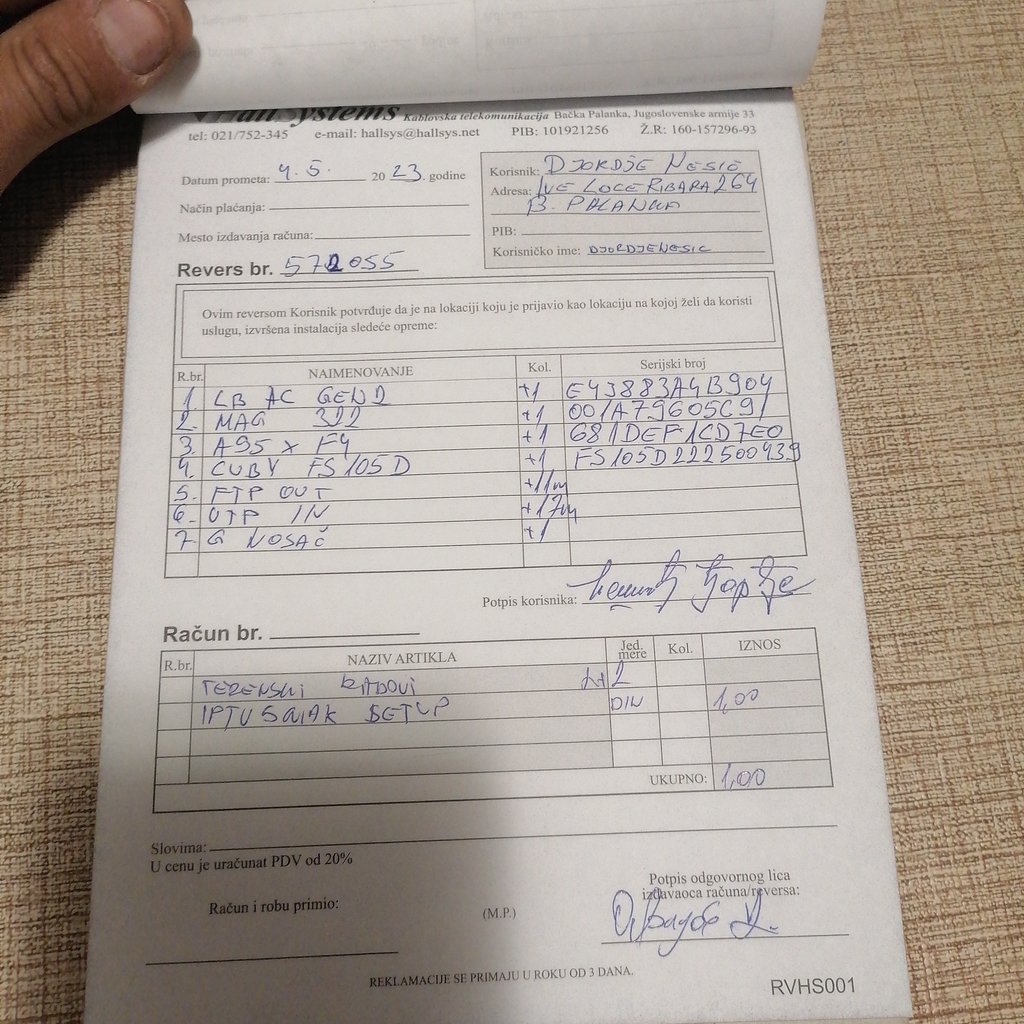 HallSystems Kablovska telekomunikacija Bačka Palanka, Jugoslovenske armije 33
tel: 021/752-345 e-mail: hallsys@hallsys.net PIB: 101921256 Ž.R: 160-157296-93
Datum prometa: 4.5. 2023. godine
Način plaćanja:
Mesto izdavanja računa:
Korisnik: DJORDJE NESIĆ
Adresa: IVE LOLE RIBARA 264
B. PALANKA
PIB:
Korisničko ime: DJORDJENESIC
Revers br. 572055
Ovim reversom Korisnik potvrđuje da je na lokaciji koju je prijavio kao lokaciju na kojoj želi da koristi
uslugu, izvršena instalacija sledeće opreme:
R.br. NAIMENOVANJE Kol. Serijski broj
1. LB AC GEN2 +1 E43883A4B904
2. MAG 322 +1 001A79605C91
3. A95X F4 +1 681DEF1CD7E0
4. CUBY FS105D +1 FS105D222500439
5. FTP OUT +11m
6. UTP IN +17m
7. G NOSAČ +1
Potpis korisnika:
Račun br.
R.br. NAZIV ARTIKLA Jed. mere Kol. IZNOS
TERENSKI RADOVI 2
IPTV SETUP DIN 1,00
UKUPNO: 1,00
Slovima:
U cenu je uračunat PDV od 20%
Račun i robu primio:
(M.P.)
Potpis odgovornog lica
izdavaoca računa/reversa:
REKLAMACIJE SE PRIMAJU U ROKU OD 3 DANA.
RVHS001